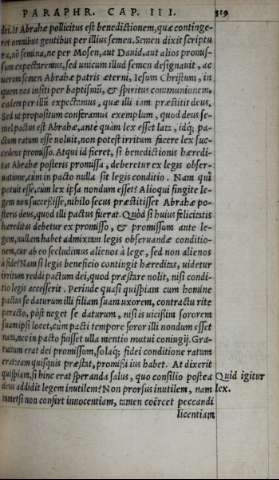 PARAPHR. CAP. III. 319
dri. Is Abrahæ pollicitus est benedictionem, quæ continge-
ret omnibus gentibus per illius semen. Semen dixit scriptu
ra, nō semina, ne per Mosen, aut Dauid, aut alios promis-
sum expectaremus, sed unicum illud semen designauit, ac
uerum semen Abrahæ patris æterni, Iesum Christum, in
quem nos insiti per baptismū, & spiritus communionem,
eadem per illū expectamus, quæ illi iam præstitit deus.
Sed ut propositum conferamus exemplum, quod deus se-
mel pactus est Abrahæ, ante quàm lex esset lata, idq; pa-
ctum ratum esse uoluit, non potest irritum facere lex suc-
cedens promisso. Atqui id fieret, si benedictionis hæredi-
tas Abrahæ posteris promissa, deberetur ex legis obser-
uatione, cùm in pacto nulla sit legis conditio. Nam quî
potuit esse, cum lex ipsa nondum esset? Alioqui fingite le-
gem non successisse, nihilo secus præstitisset Abrahæ po-
steris deus, quod illi pactus fuerat. Quòd si huius felicitatis
hæreditas debetur ex promisso, & promissum ante le-
gem, nullam habet admixtam legis obseruandæ conditio-
nem, cur ab eo secludimus alienos à lege, sed non alienos
à fide? Nam si legis beneficio contingit hæreditas, uidetur
irritum reddi pactum dei, quod præstare nolit, nisi condi-
tio legis accesserit. Perinde quasi quispiam cum homine
pactus se daturum illi filiam suam uxorem, contractu rite
peracto, pòst neget se daturum, nisi is uicissim sororem
suam ipsi locet, cùm pacti tempore soror illi nondum esset
nata, nec in pacto fuisset ulla mentio mutui coniugij. Gra-
tuitum erat dei promissum, solaq; fidei conditione ratum
erat: eam quisquis præstat, promissi ius habet. At dixerit
quispiam, si hinc erat speranda salus, quo consilio postea
deus addidit legem inutilem? Non prorsus inutilem, nam
tametsi non confert innocentiam, tamen coërcet peccandi
licentiam
Quid igitur
lex.